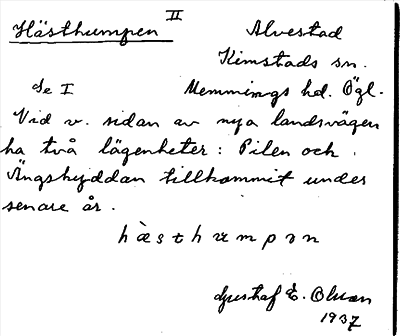 Hästhumpen II Alvestad
Kimstads sn.
Se I Memmings hd. Ögl.
Vid v. sidan av nya landsvägen
ha två lägenheter: Pilen och
Ängshyddan tillkommit under
senare år.
hàsthumpən
Gustaf E. Olsson
1937